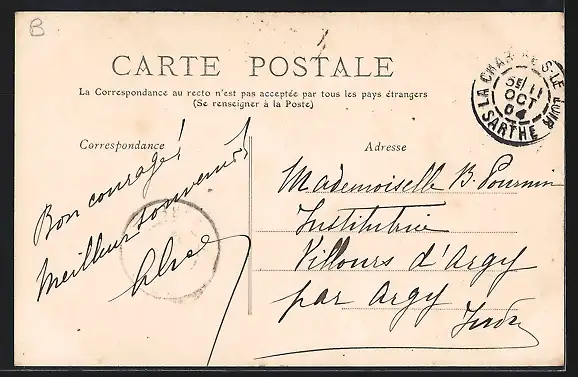 B
CARTE POSTALE
La Correspondance au recto n'est pas acceptée par tous les pays étrangers
(Se renseigner à la Poste)
Correspondance
Bon courage!
Meilleurs souvenirs
Adresse
Mademoiselle B. Pournin
Institutrice
Villours d'Argy
par Argy
Indre
LA CHARTRE-S-LE LOIR
11
OCT
04
SARTHE